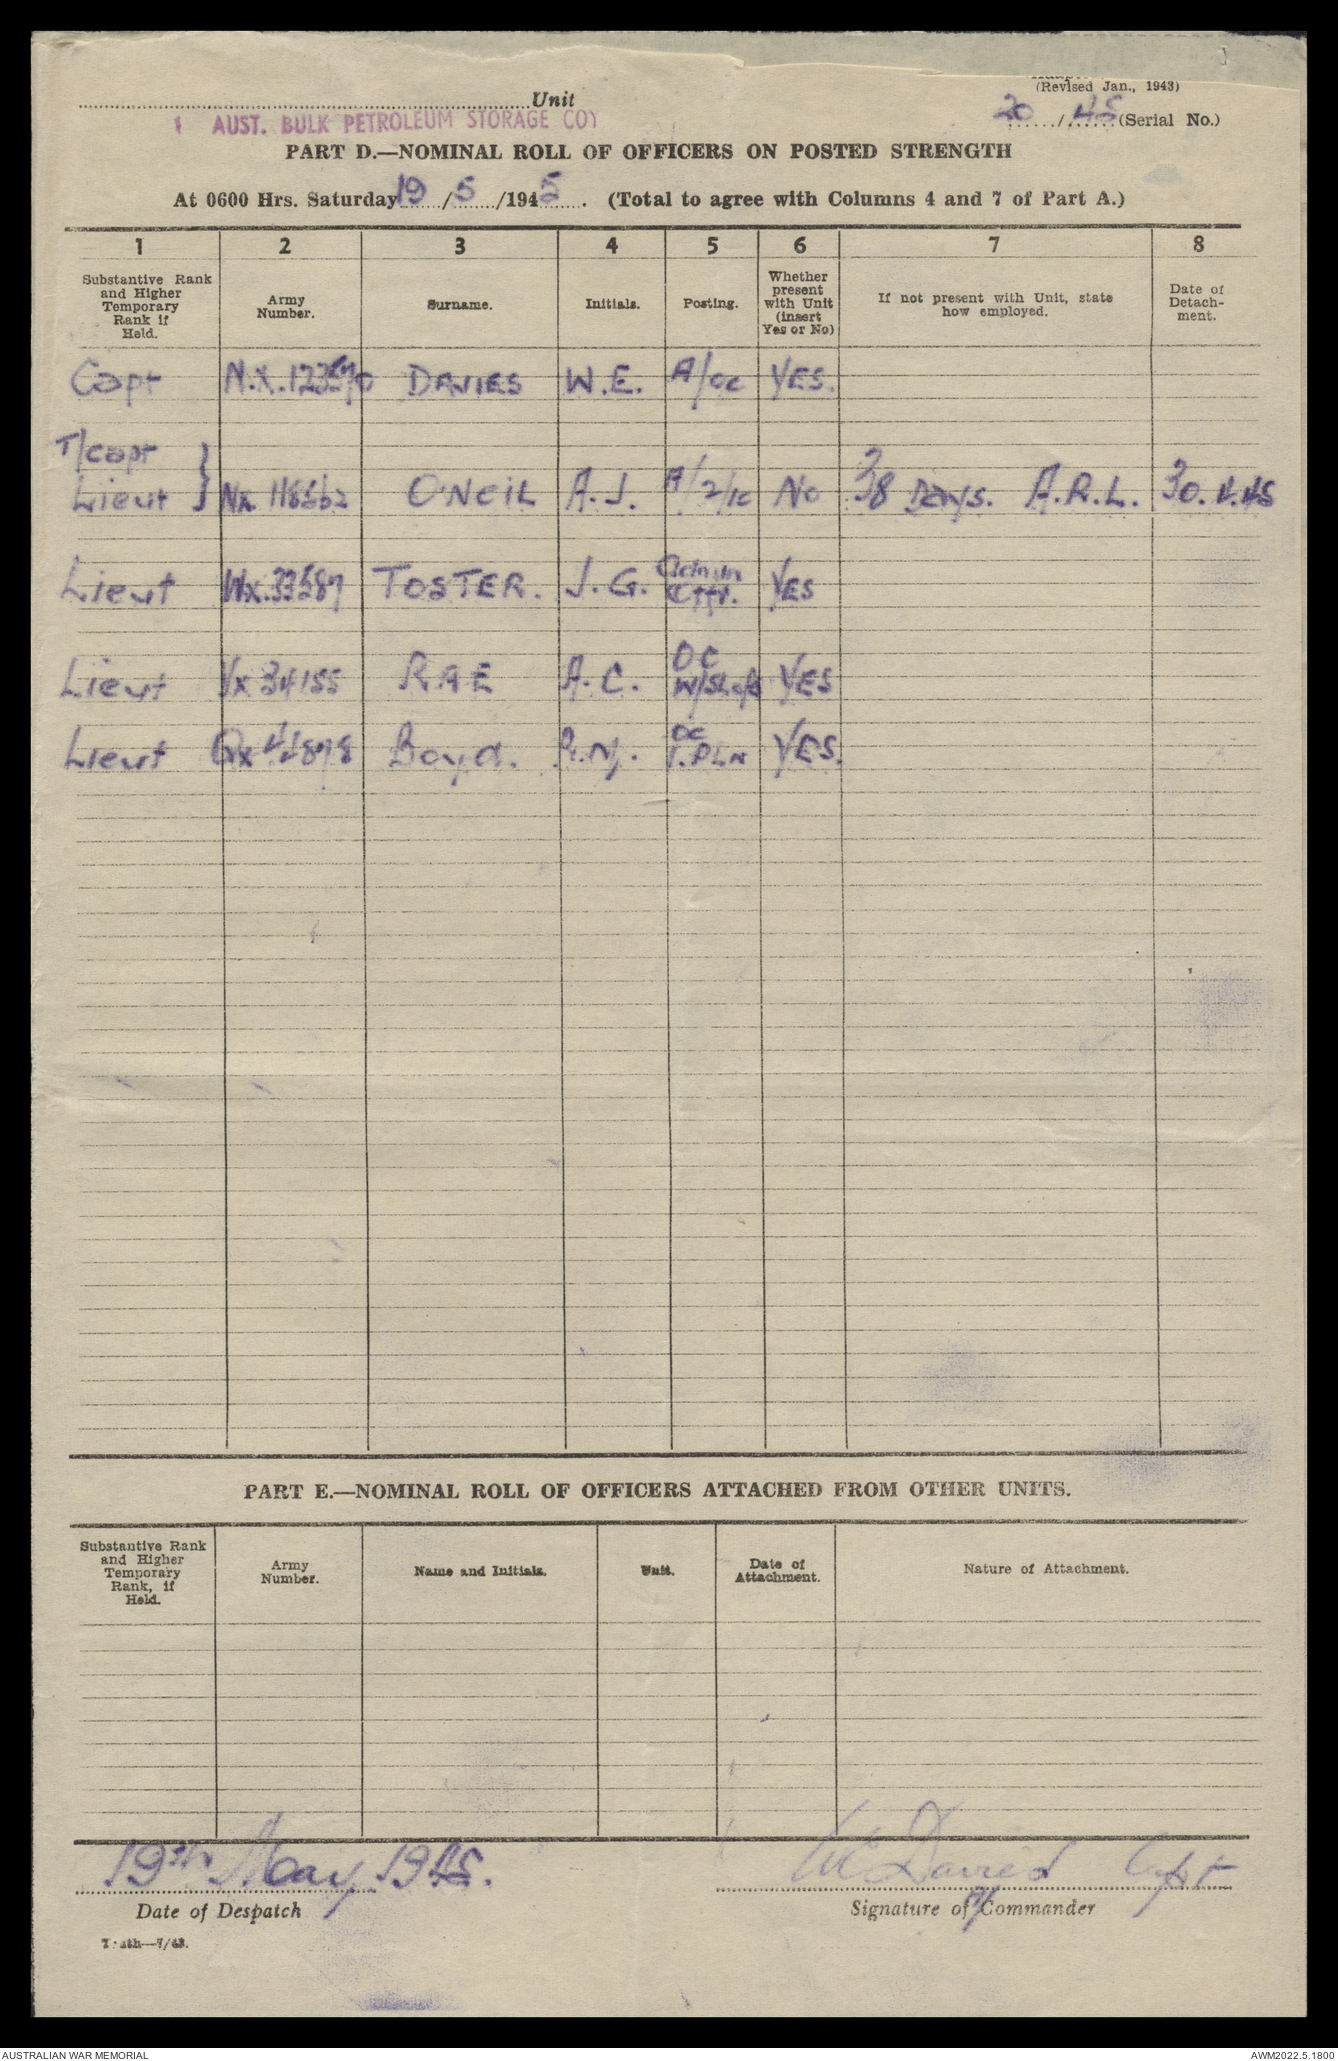 (Revised Jan., 1943)
..........Unit
1 AUST. BULK PETROLEUM STORAGE COY
20/45 (Serial No.)
PART D.—NOMINAL ROLL OF OFFICERS ON POSTED STRENGTH
At 0600 Hrs. Saturday 19/5/1945. (Total to agree with Columns 4 and 7 of Part A.)
1 2 3 4 5 6 7 8
Substantive Rank and Higher Temporary Rank if Held. Army Number. Surname. Initials. Posting. Whether present with Unit (insert Yes or No) If not present with Unit, state how employed. Date of Detach-ment.
Capt DAVIES W.E. A/OC YES.
T/Capt
Lieut } O'NEIL A.J. A/2/ic No 38 Days. A.R.L. 30.4.45
Lieut TOSTER. J.G. Admin Off. YES
Lieut Vx 34155 RAE A.C. OC W/Shops YES
Lieut Boyd. OC 1.PLN YES.
PART E.—NOMINAL ROLL OF OFFICERS ATTACHED FROM OTHER UNITS.
Substantive Rank and Higher Temporary Rank, if Held. Army Number. Name and Initials. Unit. Date of Attachment. Nature of Attachment.
19th May 1945. WE Davies Capt
Date of Despatch Signature of A/Commander
AUSTRALIAN WAR MEMORIAL AWM2022.5.1800